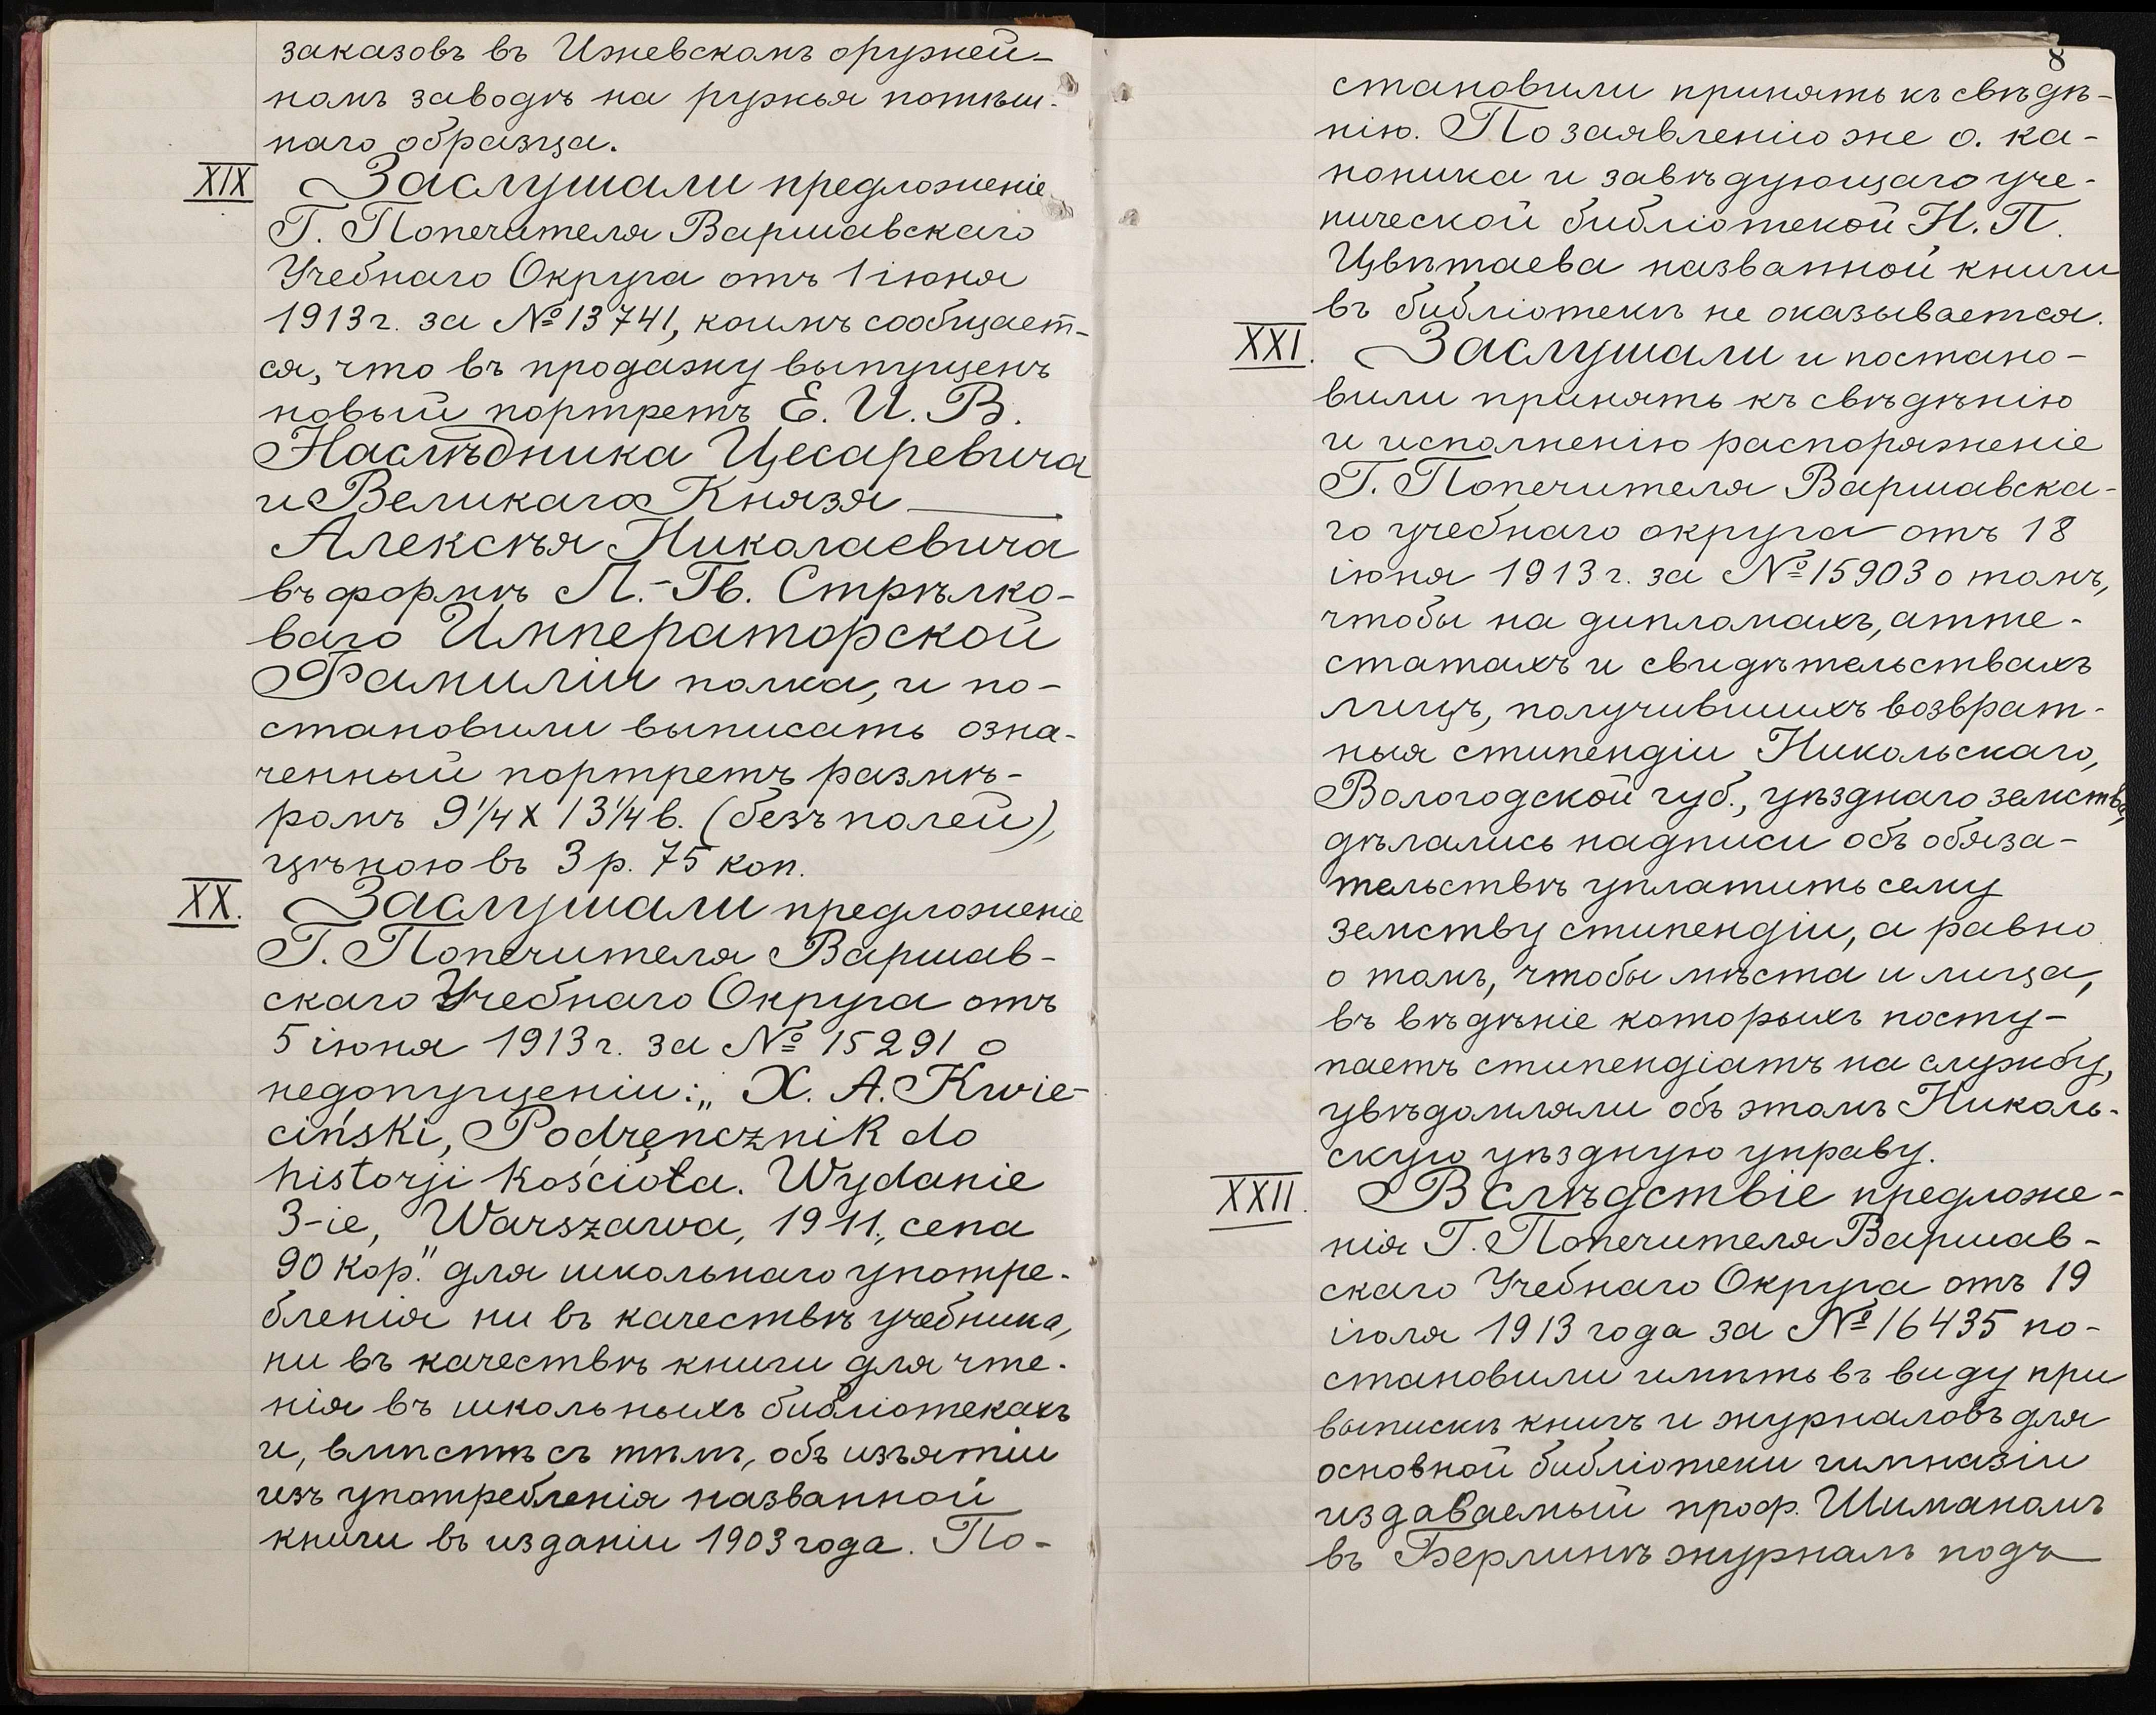 заказовъ въ Ижевскомъ оружей-
номъ заводѣ на ружья потѣш-
наго образца.
XIX Заслушали предложеніе
Г. Попечителя Варшавскаго
Учебнаго Округа отъ 1 іюня
1913 г. за № 13741, коимъ сообщает-
ся, что въ продажу выпущенъ
новый портретъ Е. И. В.
Наслѣдника Цесаревича
и Великаго Князя
Алексѣя Николаевича
въ формѣ Л.-Гв. Стрѣлко-
ваго Императорской
Фамиліи полка, и по-
становили выписать озна-
ченный портретъ размѣ-
ромъ 9 1/4 x 13 1/4 в. (безъ полей),
цѣною въ 3 р. 75 коп.
XX. Заслушали предложеніе
Г. Попечителя Варшав-
скаго Учебнаго Округа отъ
5 іюня 1913 г. за № 15291 о
недопущеніи: „X. A. Kwie-
ciński, Podręncznik do
historji Kościoła. Wydanie
3-ie, Warszawa, 1911, cena
90 kop." для школьнаго употре-
бленія ни въ качествѣ учебника,
ни въ качествѣ книги для чте-
нія въ школьныхъ библіотекахъ
и, вмѣстѣ съ тѣмъ, объ изъятіи
изъ употребленія названной
книги въ изданіи 1903 года. По-
8
становили принять къ свѣдѣ-
нію. По заявленію же о. ка-
ноника и завѣдующаго уче-
нической библіотекой Н. П.
Цвѣтаева названной книги
въ библіотекѣ не оказывается.
XXI. Заслушали и постано-
вили принять къ свѣдѣнію
и исполненію распоряженіе
Г. Попечителя Варшавска-
го учебнаго округа отъ 18
іюня 1913 г. за № 15903 о томъ,
чтобы на дипломахъ, атте-
статахъ и свидѣтельствахъ
лицъ, получившихъ возврат-
ныя стипендіи Никольскаго,
Вологодской губ., уѣзднаго земства,
дѣлались надписи объ обяза-
тельствѣ уплатить сему
земству стипендіи, а равно
о томъ, чтобы мѣста и лица,
въ вѣдѣніе которыхъ посту-
паетъ стипендіатъ на службу,
увѣдомляли объ этомъ Николь-
скую уѣздную управу.
XXII. Вслѣдствіе предложе-
нія Г. Попечителя Варшав-
скаго Учебнаго Округа отъ 19
іюля 1913 года за № 16435 по-
становили имѣть въ виду при
выпискѣ книгъ и журналовъ для
основной библіотеки гимназіи
издаваемый проф. Шиманомъ
въ Берлинѣ журналъ подъ